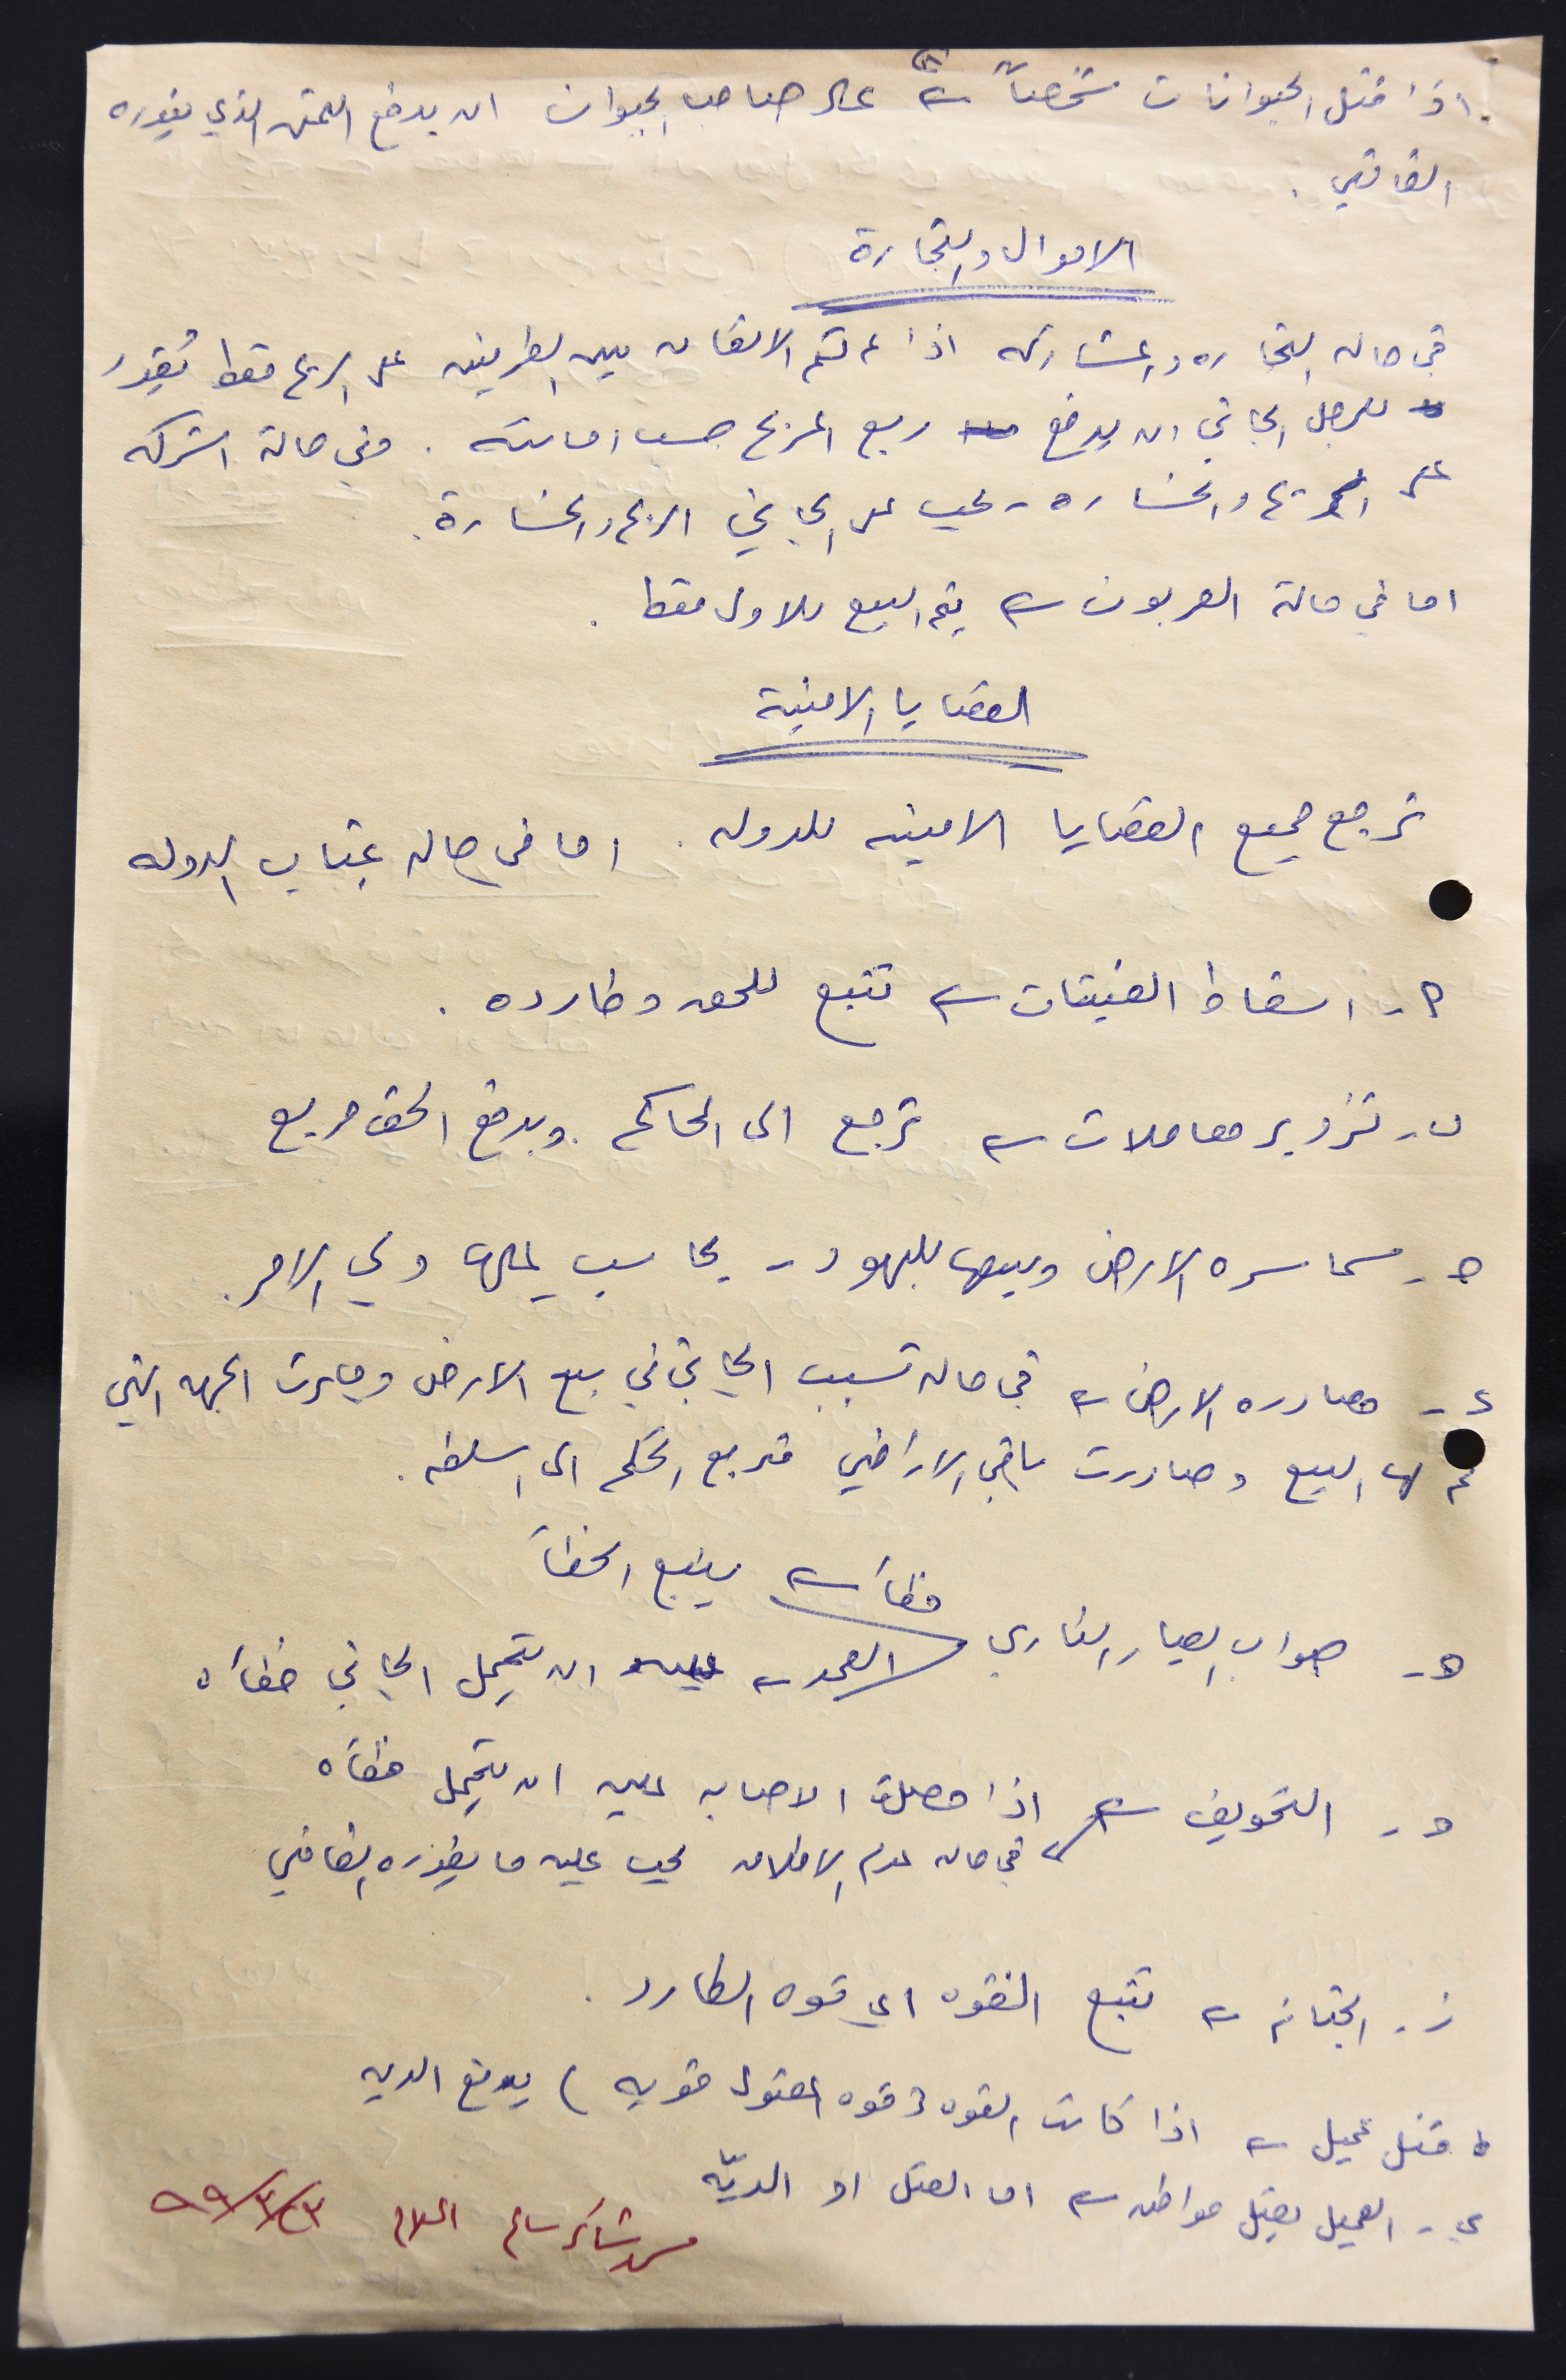 (٨)
١. اذا قتل الحيوانات شخصاً ← على صاحب الحيوان ان يدفع الثمن الذي يقرره
القاضي .
الاموال والتجارة
في حاله التجاره والمشاركه اذا تم الاتفاق بين الطرفين على الربح فقط تقدر
للرجل الجاني ان يدفع ربع المربح حسب امانته . وفي حالة الشركه
على الربح والخساره - يجب على الجاني الربح والخسارة .
اما في حالة العربون ← يتم البيع للاول فقط .
القضايا الامنية
ترجع جميع القضايا الامنيه للدوله . اما في حاله غياب الدوله
٢ - اسقاط الفتيات ← تتبع للحق وطارده .
ب - تزوير معاملات ← ترجع الى الحاكم . ويدفع الحق مربع
ج - سماسره الارض وبيعها لليهود - يحاسب عليها ولي الامر .
د - مصادره الارض ← في حاله تسبب الجاني في بيع الارض وصادرت الجهه التي
تم لها البيع وصادرت باقي الاراضي فترجع الحكم الى السلطه .
خطأ ← يتبع الخطأ
هـ - صواب العيار الناري
العمد ← عليه ان يتحمل الجاني خطأه
و - التخويف ← اذا حصلت الاصابه عليه ان يتحمل خطأه
← في حاله عدم الاطلاق يجب عليه ما يقرره القاضي
ز - الخيانه ← تتبع القوه اي قوه الطارد .
ط قتل عميل ← اذا كانت القوه (قوه المقتول قويه) يدفع الديه
ي - العميل يقتل مواطن ← اما القتل او الديّه
شاكر سالم ٩٩/٣/٢٣